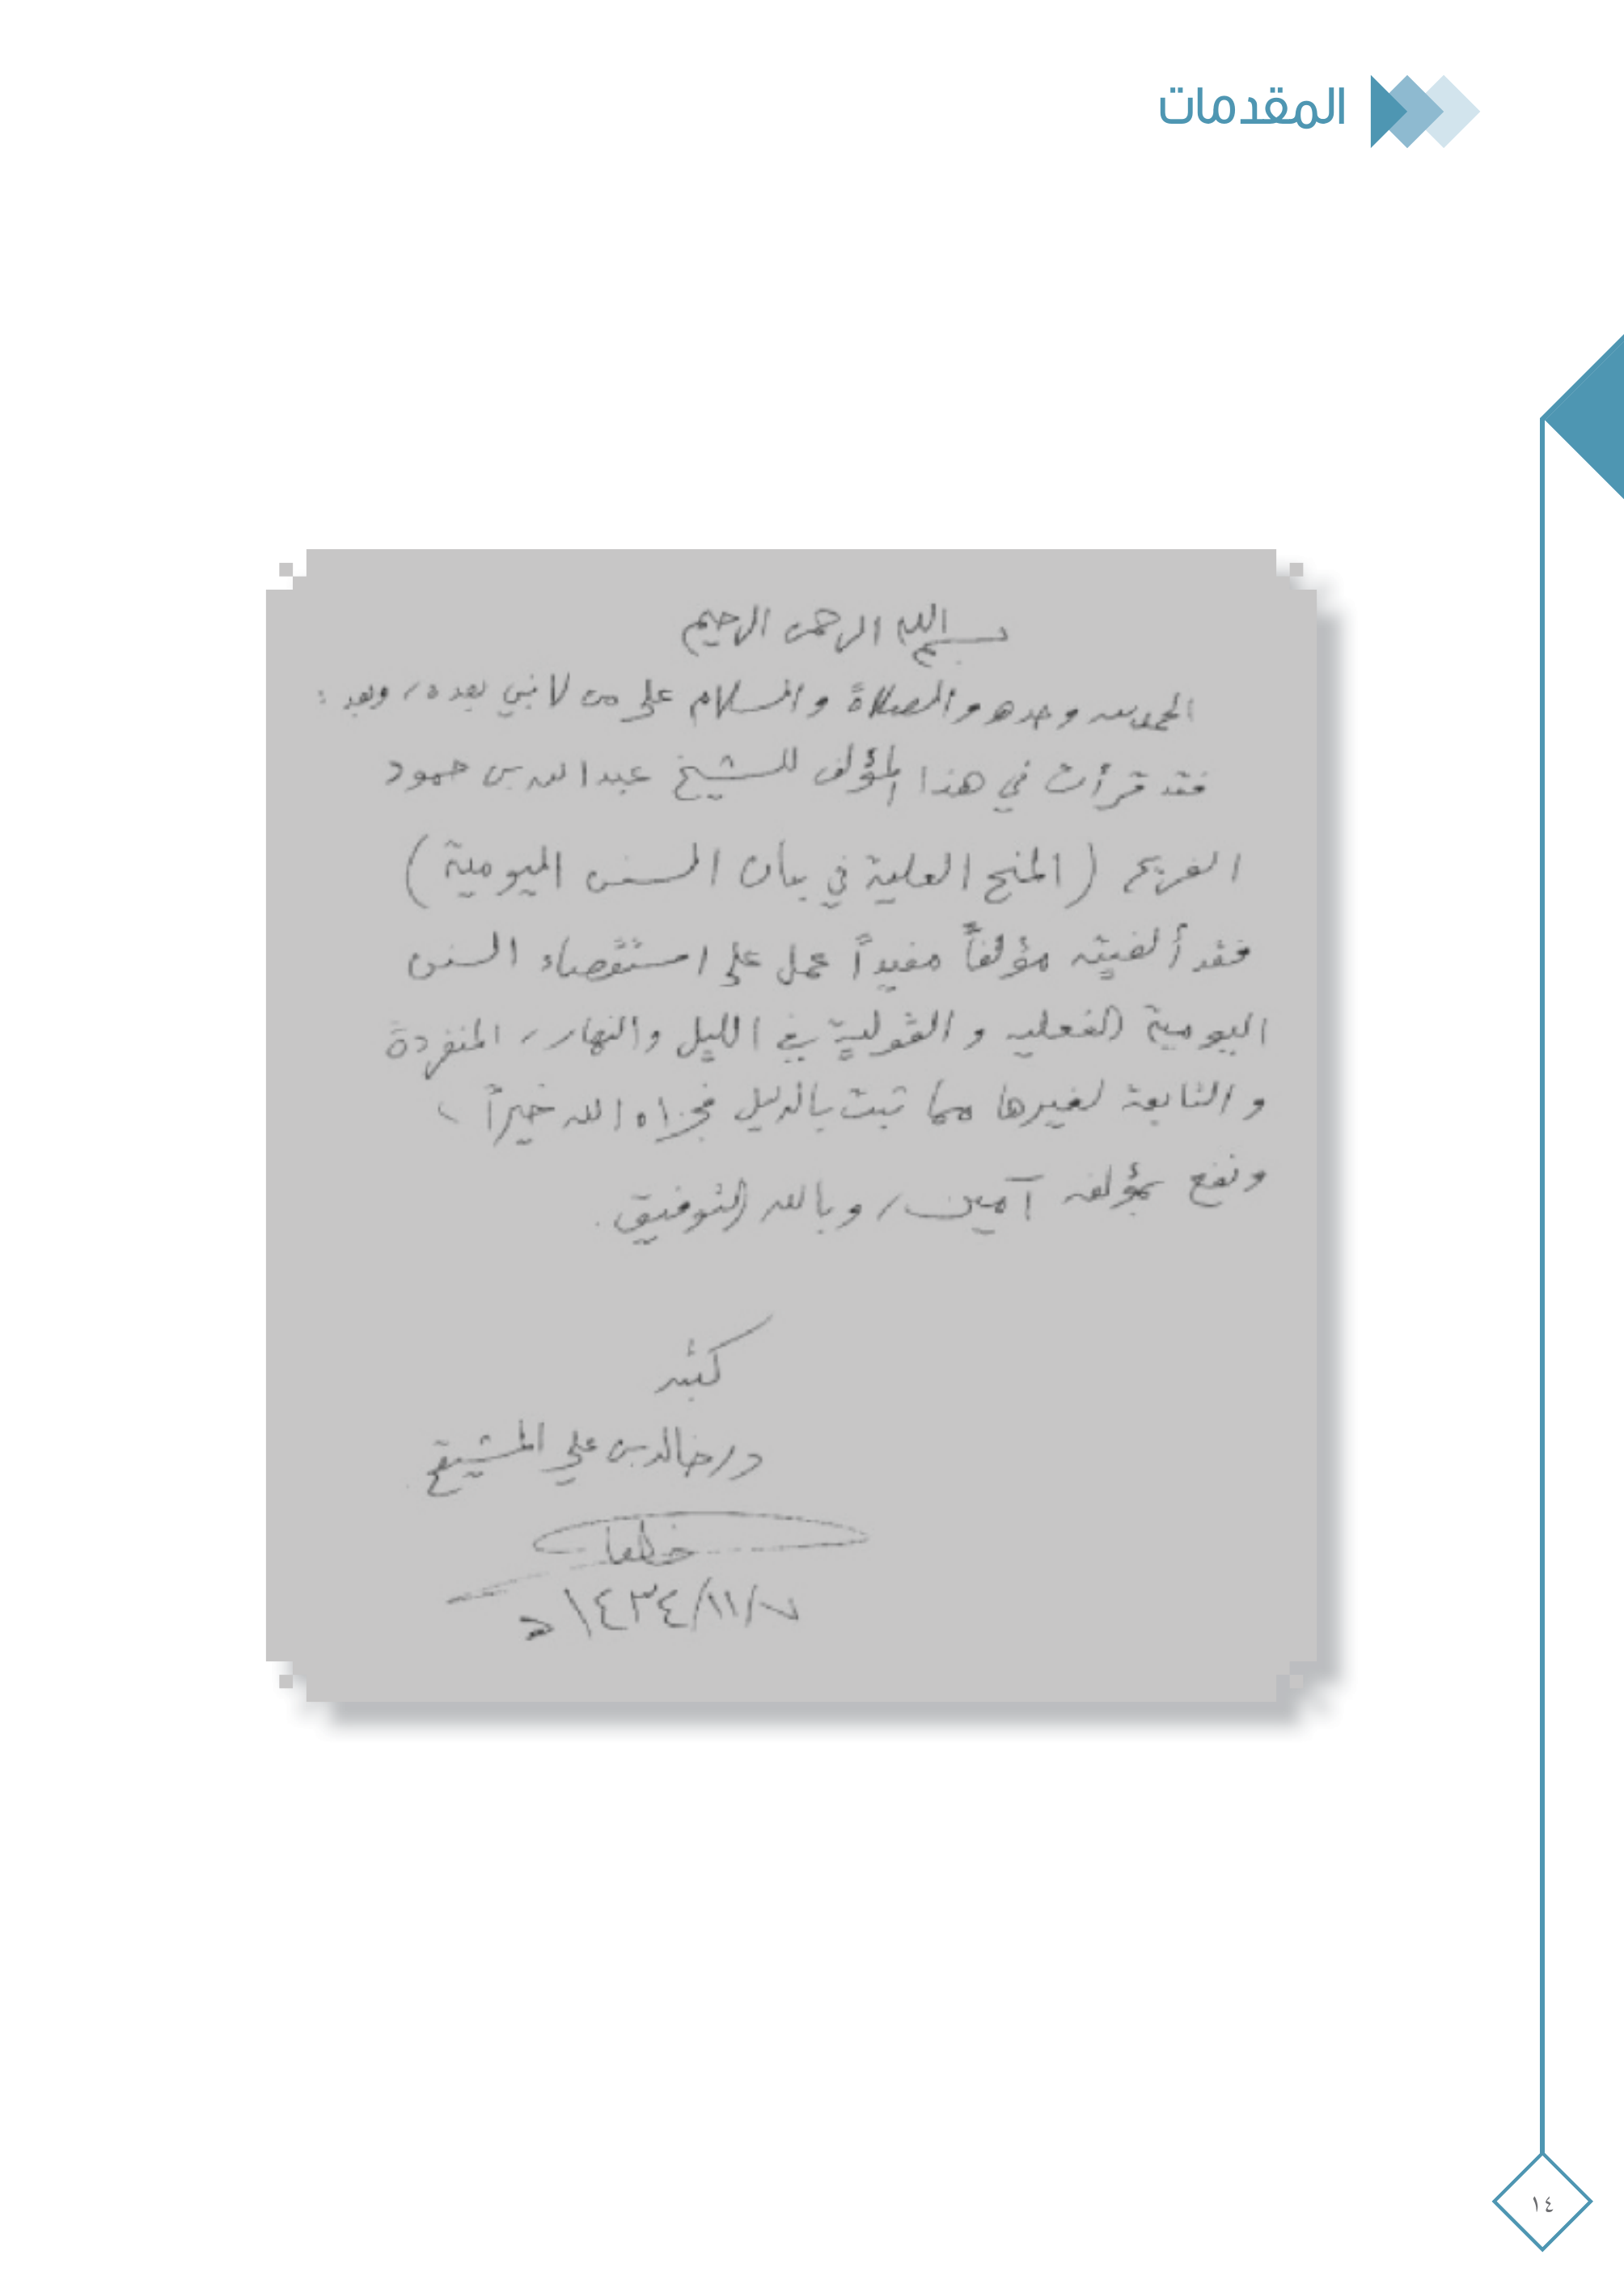 المقدمات
بسم الله الرحمن الرحيم
الحمد لله وحده والصلاة والسلام على من لا نبي بعده، وبعد :
فقد قرأت في هذا المؤلف للشيخ عبد الله بن حمود
الفريح (المنح العلية في بيان السنن اليومية)
فقد ألفيته مؤلفاً مفيداً عمل على استقصاء السنن
اليومية الفعلية والقولية في الليل والنهار، المنفردة
والتابعة لغيرها مما ثبت بالدليل فجزاه الله خيراً،
ونفع بمؤلفه آمين، وبالله التوفيق.
كتبه
د/ خالد بن علي المشيقح
١٤٣٤/١١/٧ هـ
١٤